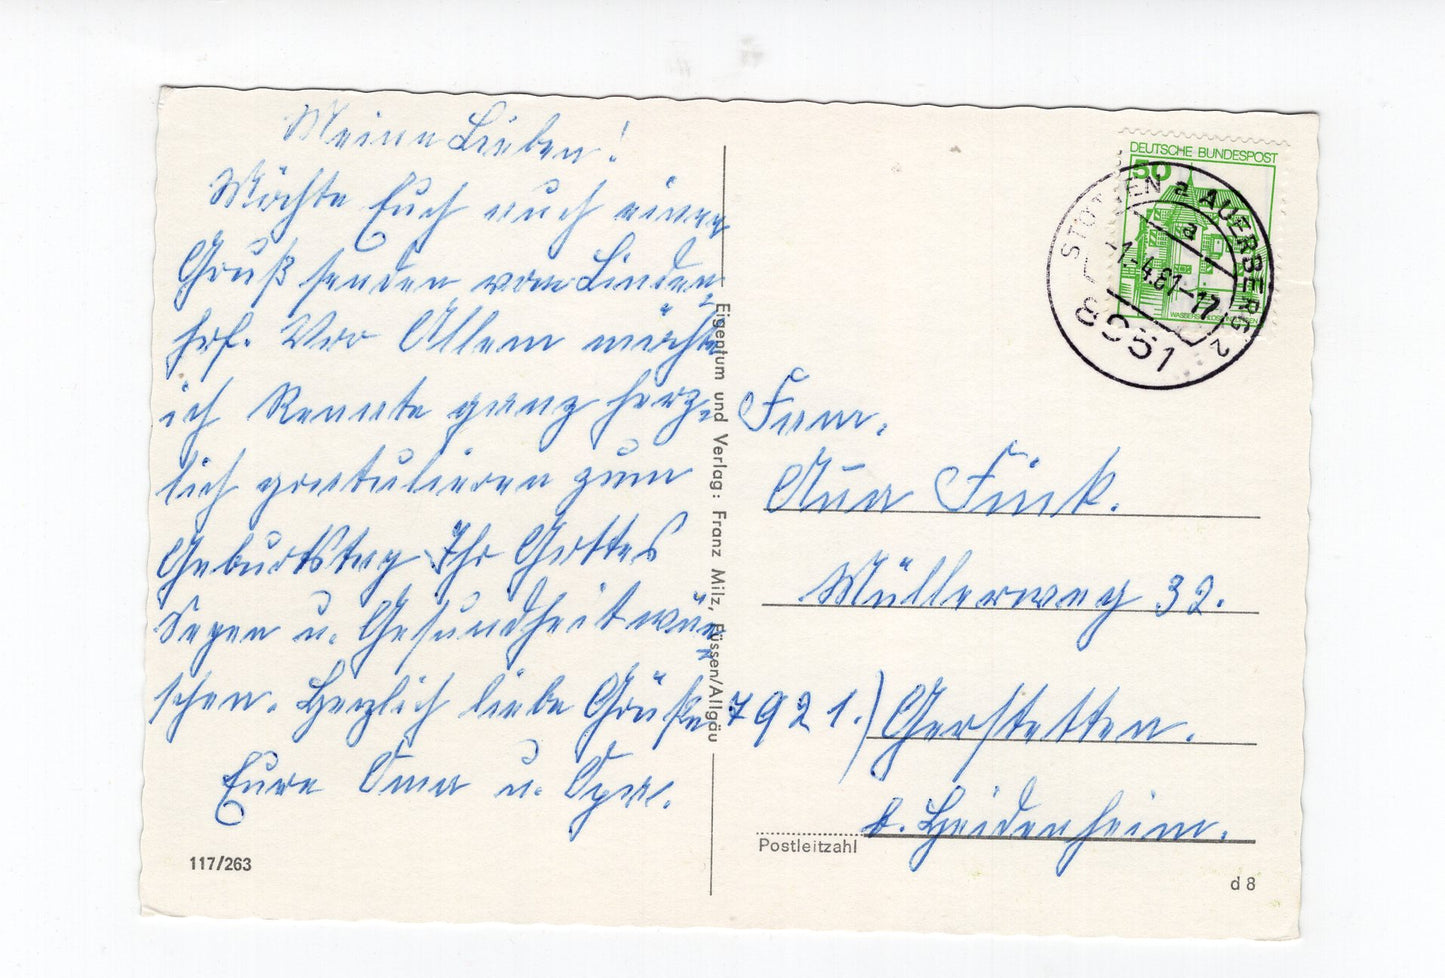 Meine Lieben!
Möchte Euch auch einen
Gruß senden vom Linden=
hof. Vor Allem möchte
ich Renate ganz herz=
lich gratulieren zum
Geburtstag Ihr Gottes
Segen u. Gesundheit wün=
schen. Herzlich liebe Grüße
Eure Oma u. Opa.
117/263
Eigentum und Verlag: Franz Milz, Füssen/Allgäu
DEUTSCHE BUNDESPOST
50
STÖTTEN a AUERBERG 2
a
-1.-4.81-17
8951
Fam.
Fink.
Müllerweg 32.
7921.) Gerstetten.
b. Heidenheim.
Postleitzahl
d 8